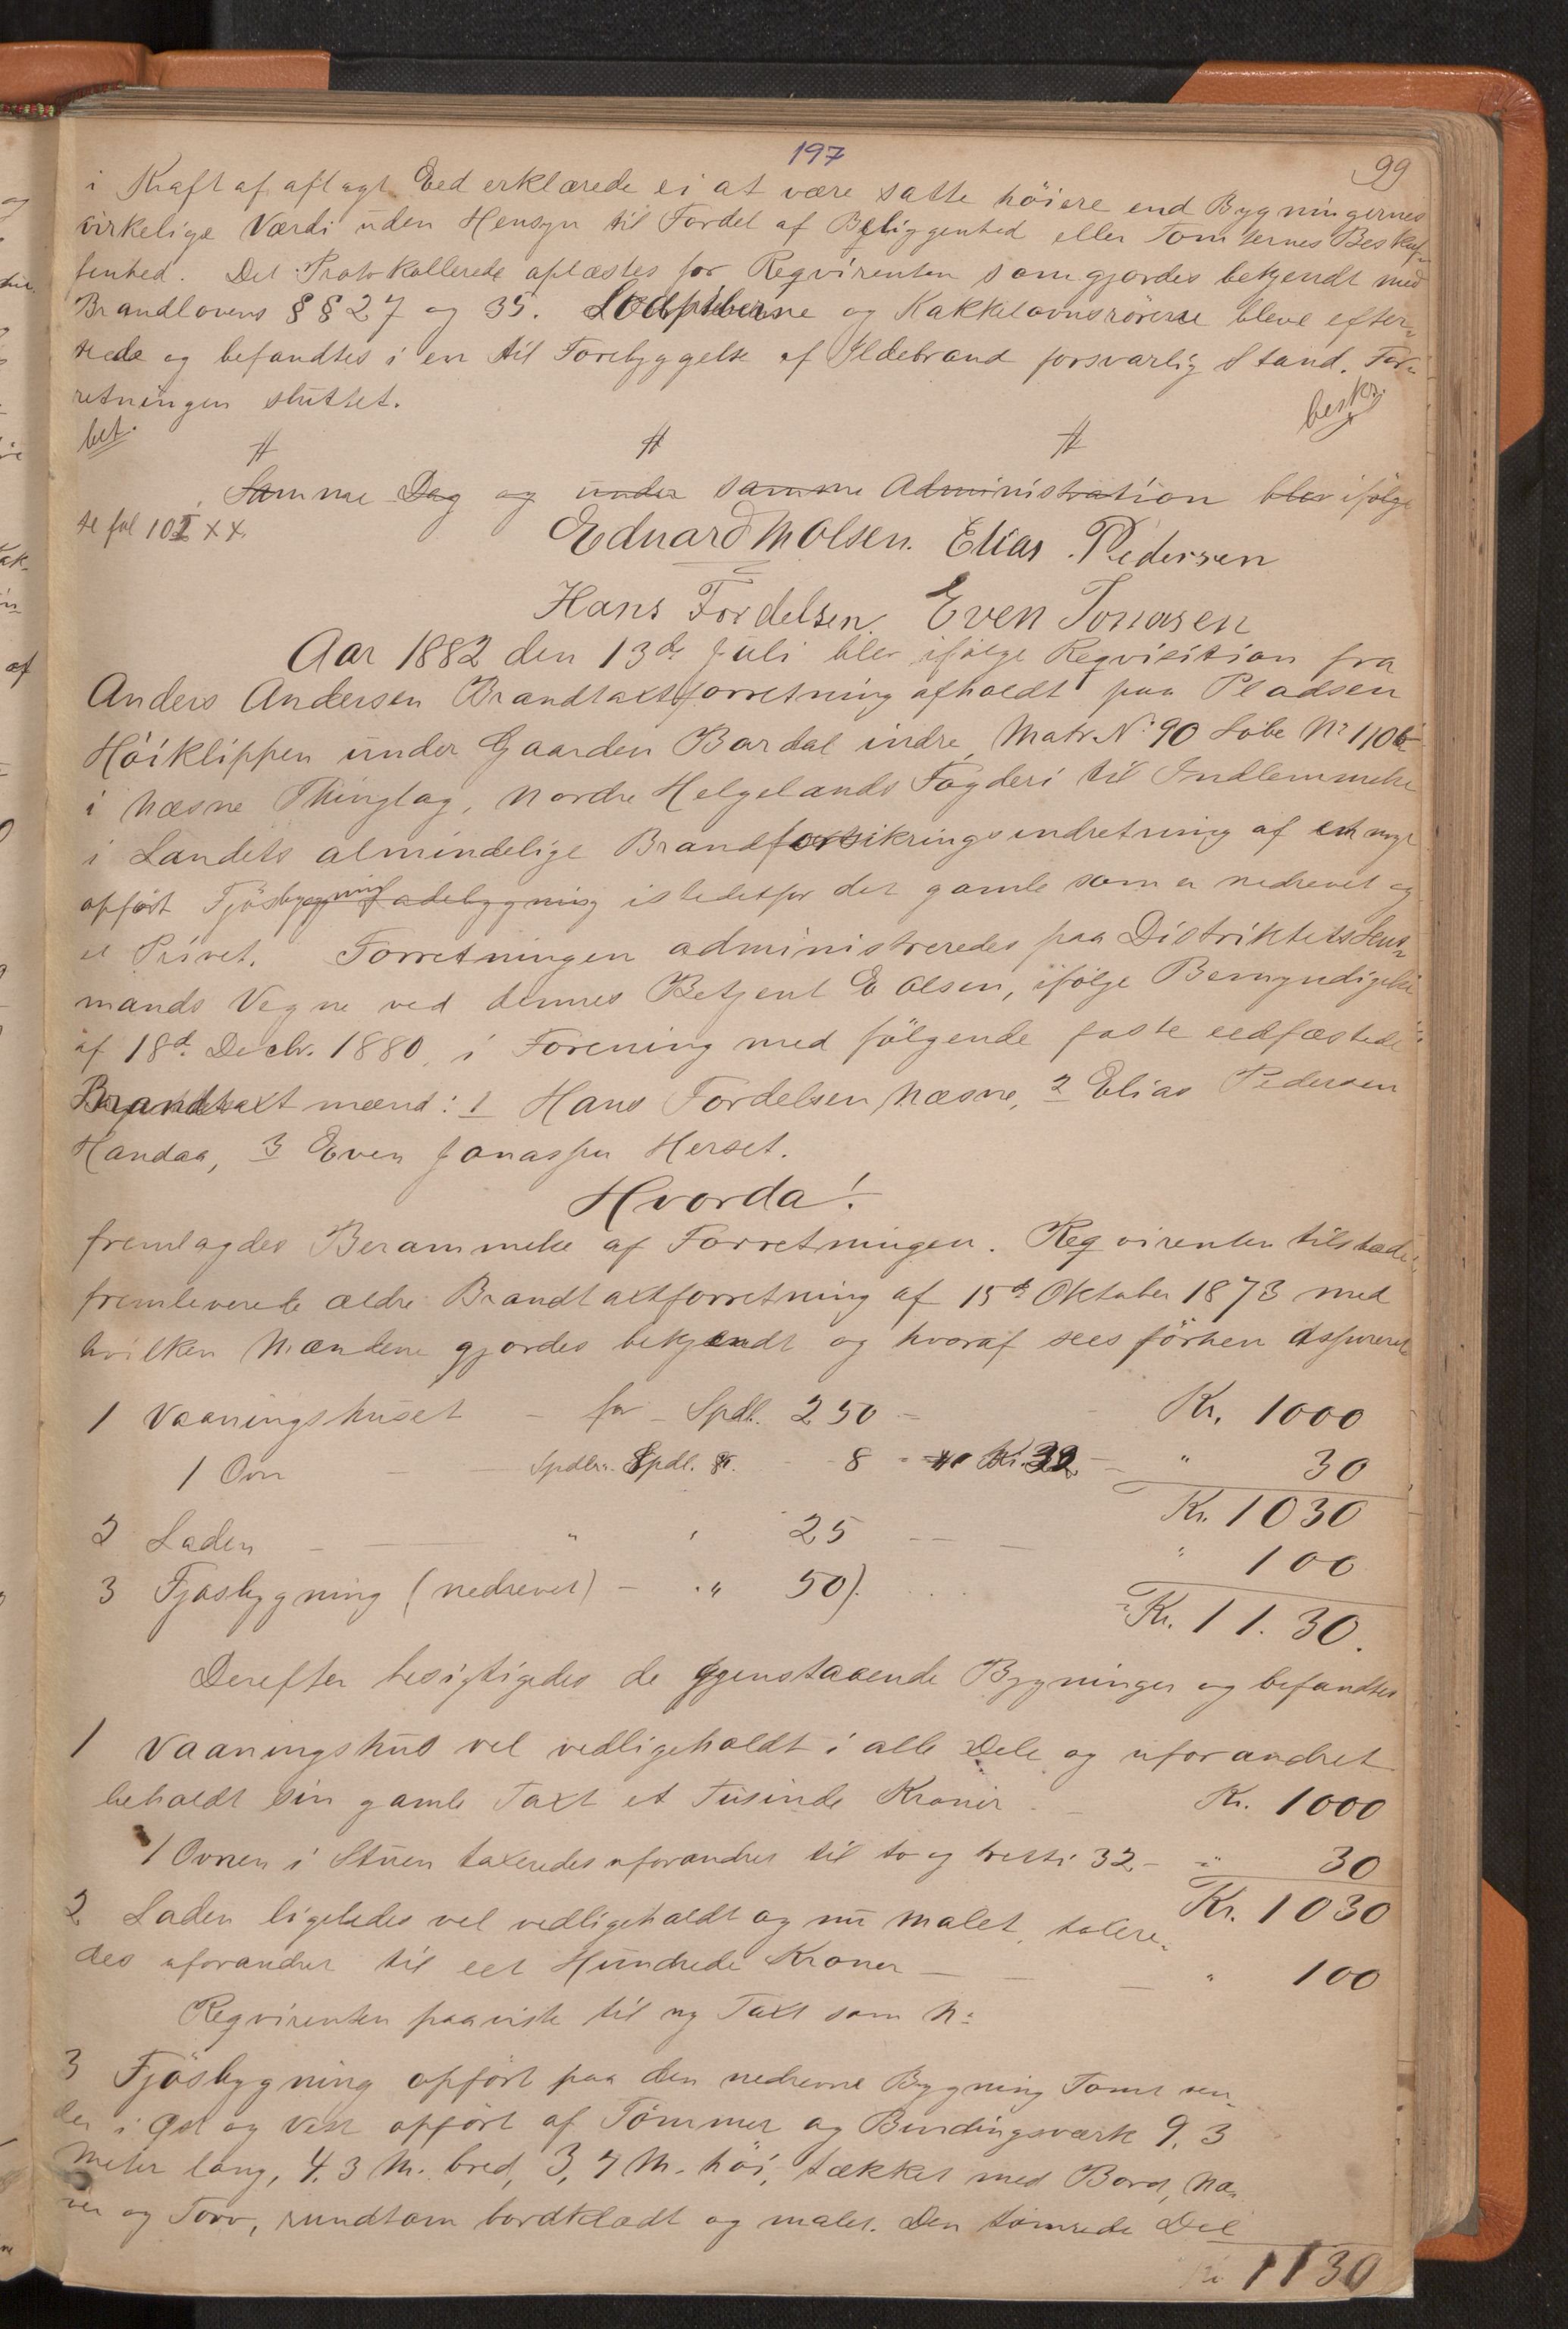 197
99
i Kraft af aflagt Eed erklærede ei at være satte höiere end Bygningernes
virkelige Værdi uden Hensyn til Fordel af Beliggenhed eller Tomternes Beskaf-
fenhed. Det Protokollerede oplæstes for Reqvirenten som gjordes bekjendt med
Brandlovens §§ 27 og 35. Lodpiberne og Kakkelovnsrörene bleve efter-
sede og befandtes i en til Forebyggelse af Ildebrand forsvarlig Stand. For-
retningen sluttet.
bet. beskr.
Samme Dag og under samme Administration blev ifölge
se fol 101 XX.
Eduard M Olsen. Elias Pedersen
Hans Fordelsen Even Jonasen
Aar 1882 den 13de Juli blev ifölge Reqvisition fra
Anders Andersen Brandtaxtforretning afholdt paa Pladsen
Höiklippen under Gaarden Bardal indre Matr. No 90 Löbe No 110b
i Næsne Thinglag, Nordre Helgelands Fogderi til Indlemmelse
i Landets almindelige Brandforsikringsindretning af en nyt
opfört Fjösbygning ladebygning istedetfor det gamle som er nedrevet og
et Privet. Forretningen administreredes paa Distriktets Lens-
mands Vegne ved dennes Betjent E Olsen, ifölge Bemyndigelse
af 18d. Decbr. 1880, i Forening med fölgende faste eedfæstede
Brandtaxtmænd: 1 Hans Fordelsen Næsne, 2 Elias Pedersen
Handaa, 3 Even Jonassen Herset.
Hvorda!
fremlagdes Berammelse af Forretningen. Reqvirenten tilstæde
fremleverede ældre Brandtaxtforretning af 15d Oktober 1873 med
hvilken Mændene gjordes bekjendt og hvoraf sees förhen assureret
1 Vaaningshuset - for - Spdl. 250 - Kr. 1000
1 Ovn - Spdlr. Spdl. 8 - Kr. 32 - " 30
Kr. 1030
2 Laden - " 25 - " 100
3 Fjösbygning (nedrevet) - " 50).
Kr. 11.30.
Derefter besigtigedes de gjenstaaende Bygninger og befandtes
1 Vaaningshus vel vedligeholdt i alle Dele og uforandret
beholdt sin gamle Taxt et Tusinde Kroner - Kr. 1000
1 Ovnen i Stuen taxeredes uforandret til to og tretti 32 - " 30
Kr. 1030
2 Laden ligeledes vel vedligeholdt og nu malet, taxere-
des uforandret til eet Hundrede Kroner - " 100
Reqvirenten paaviste til ny Taxt som No
3 Fjösbygning opfört paa den nedrevne Bygning Tomt ven-
der i Öst og Vest opfört af Tömmer og Bindingsværk 9,3
Meter lang, 4,3 M. bred, 3,7 M. höi, tækket med Bord, Næ-
ver og Torv, rundtom bordklædt og malet. Den tömrede Del
Kr 1130